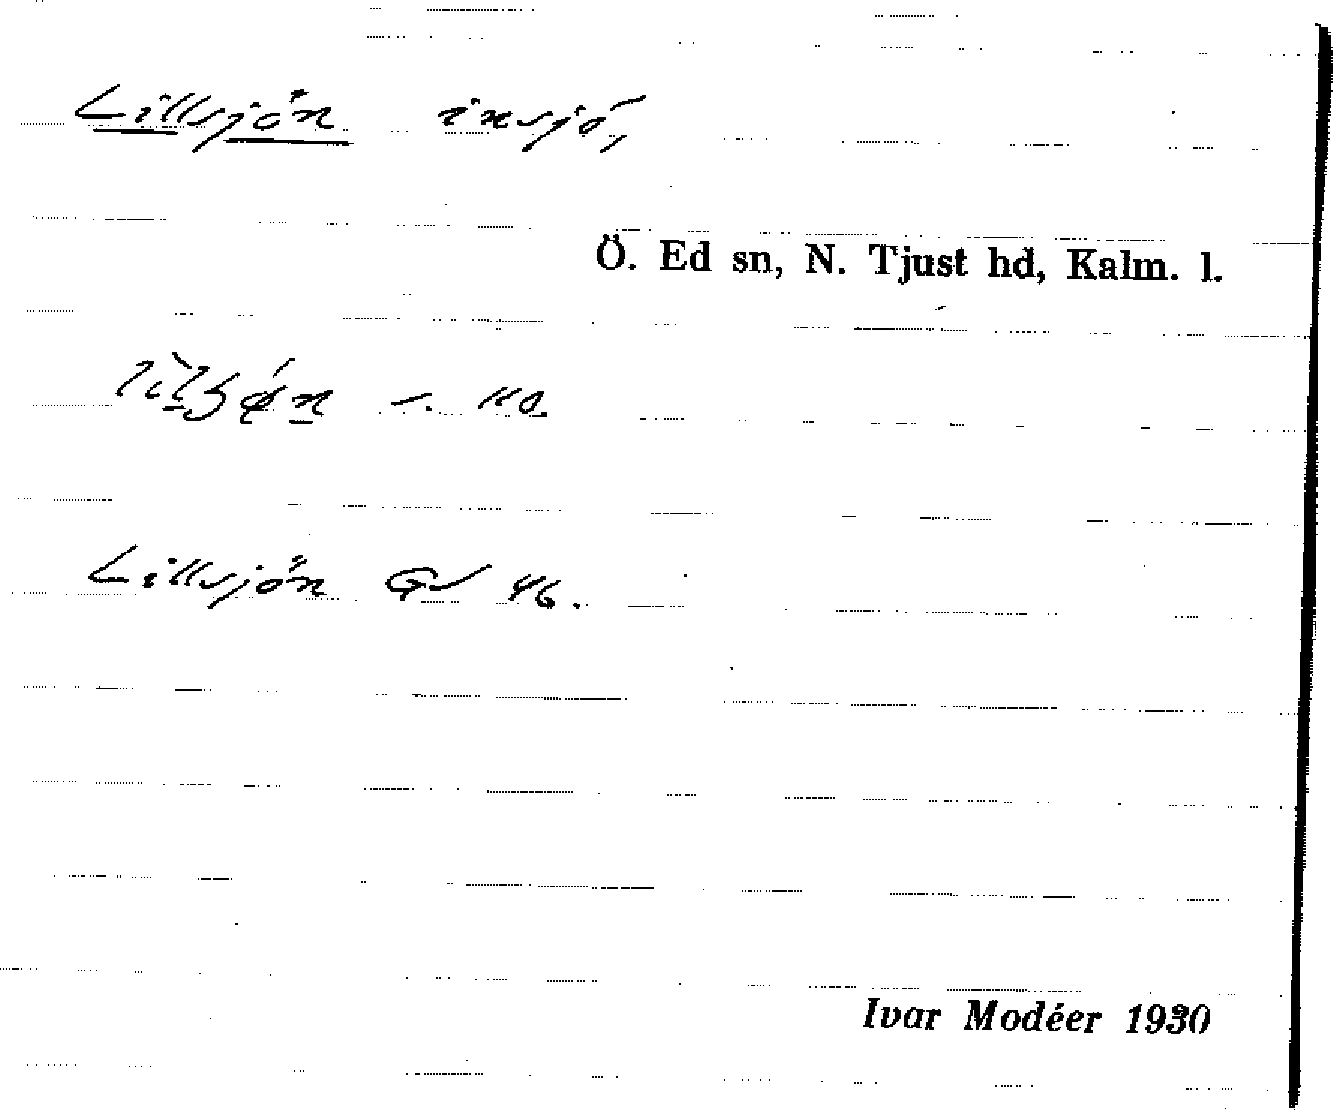 Lillsjön insjö,
Ö. Ed sn, N. Tjust hd, Kalm. l.
Lillsjön GS 46.
Ivar Modéer 1930